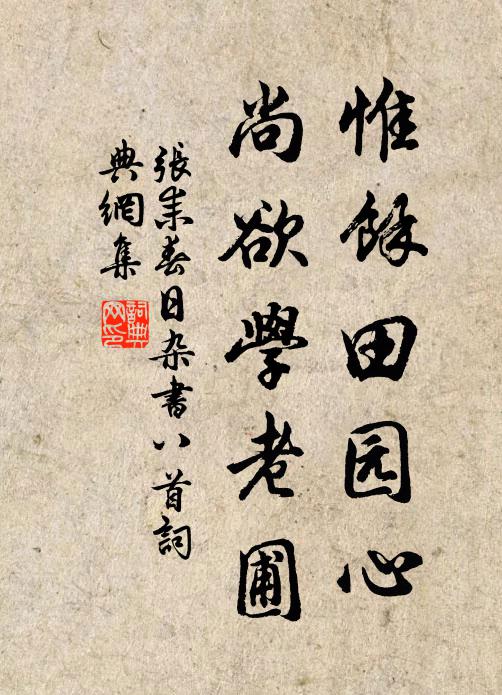 惟餘田园心
尚欲學老圃
張耒春日杂書八首詞
典網集
詞典网印